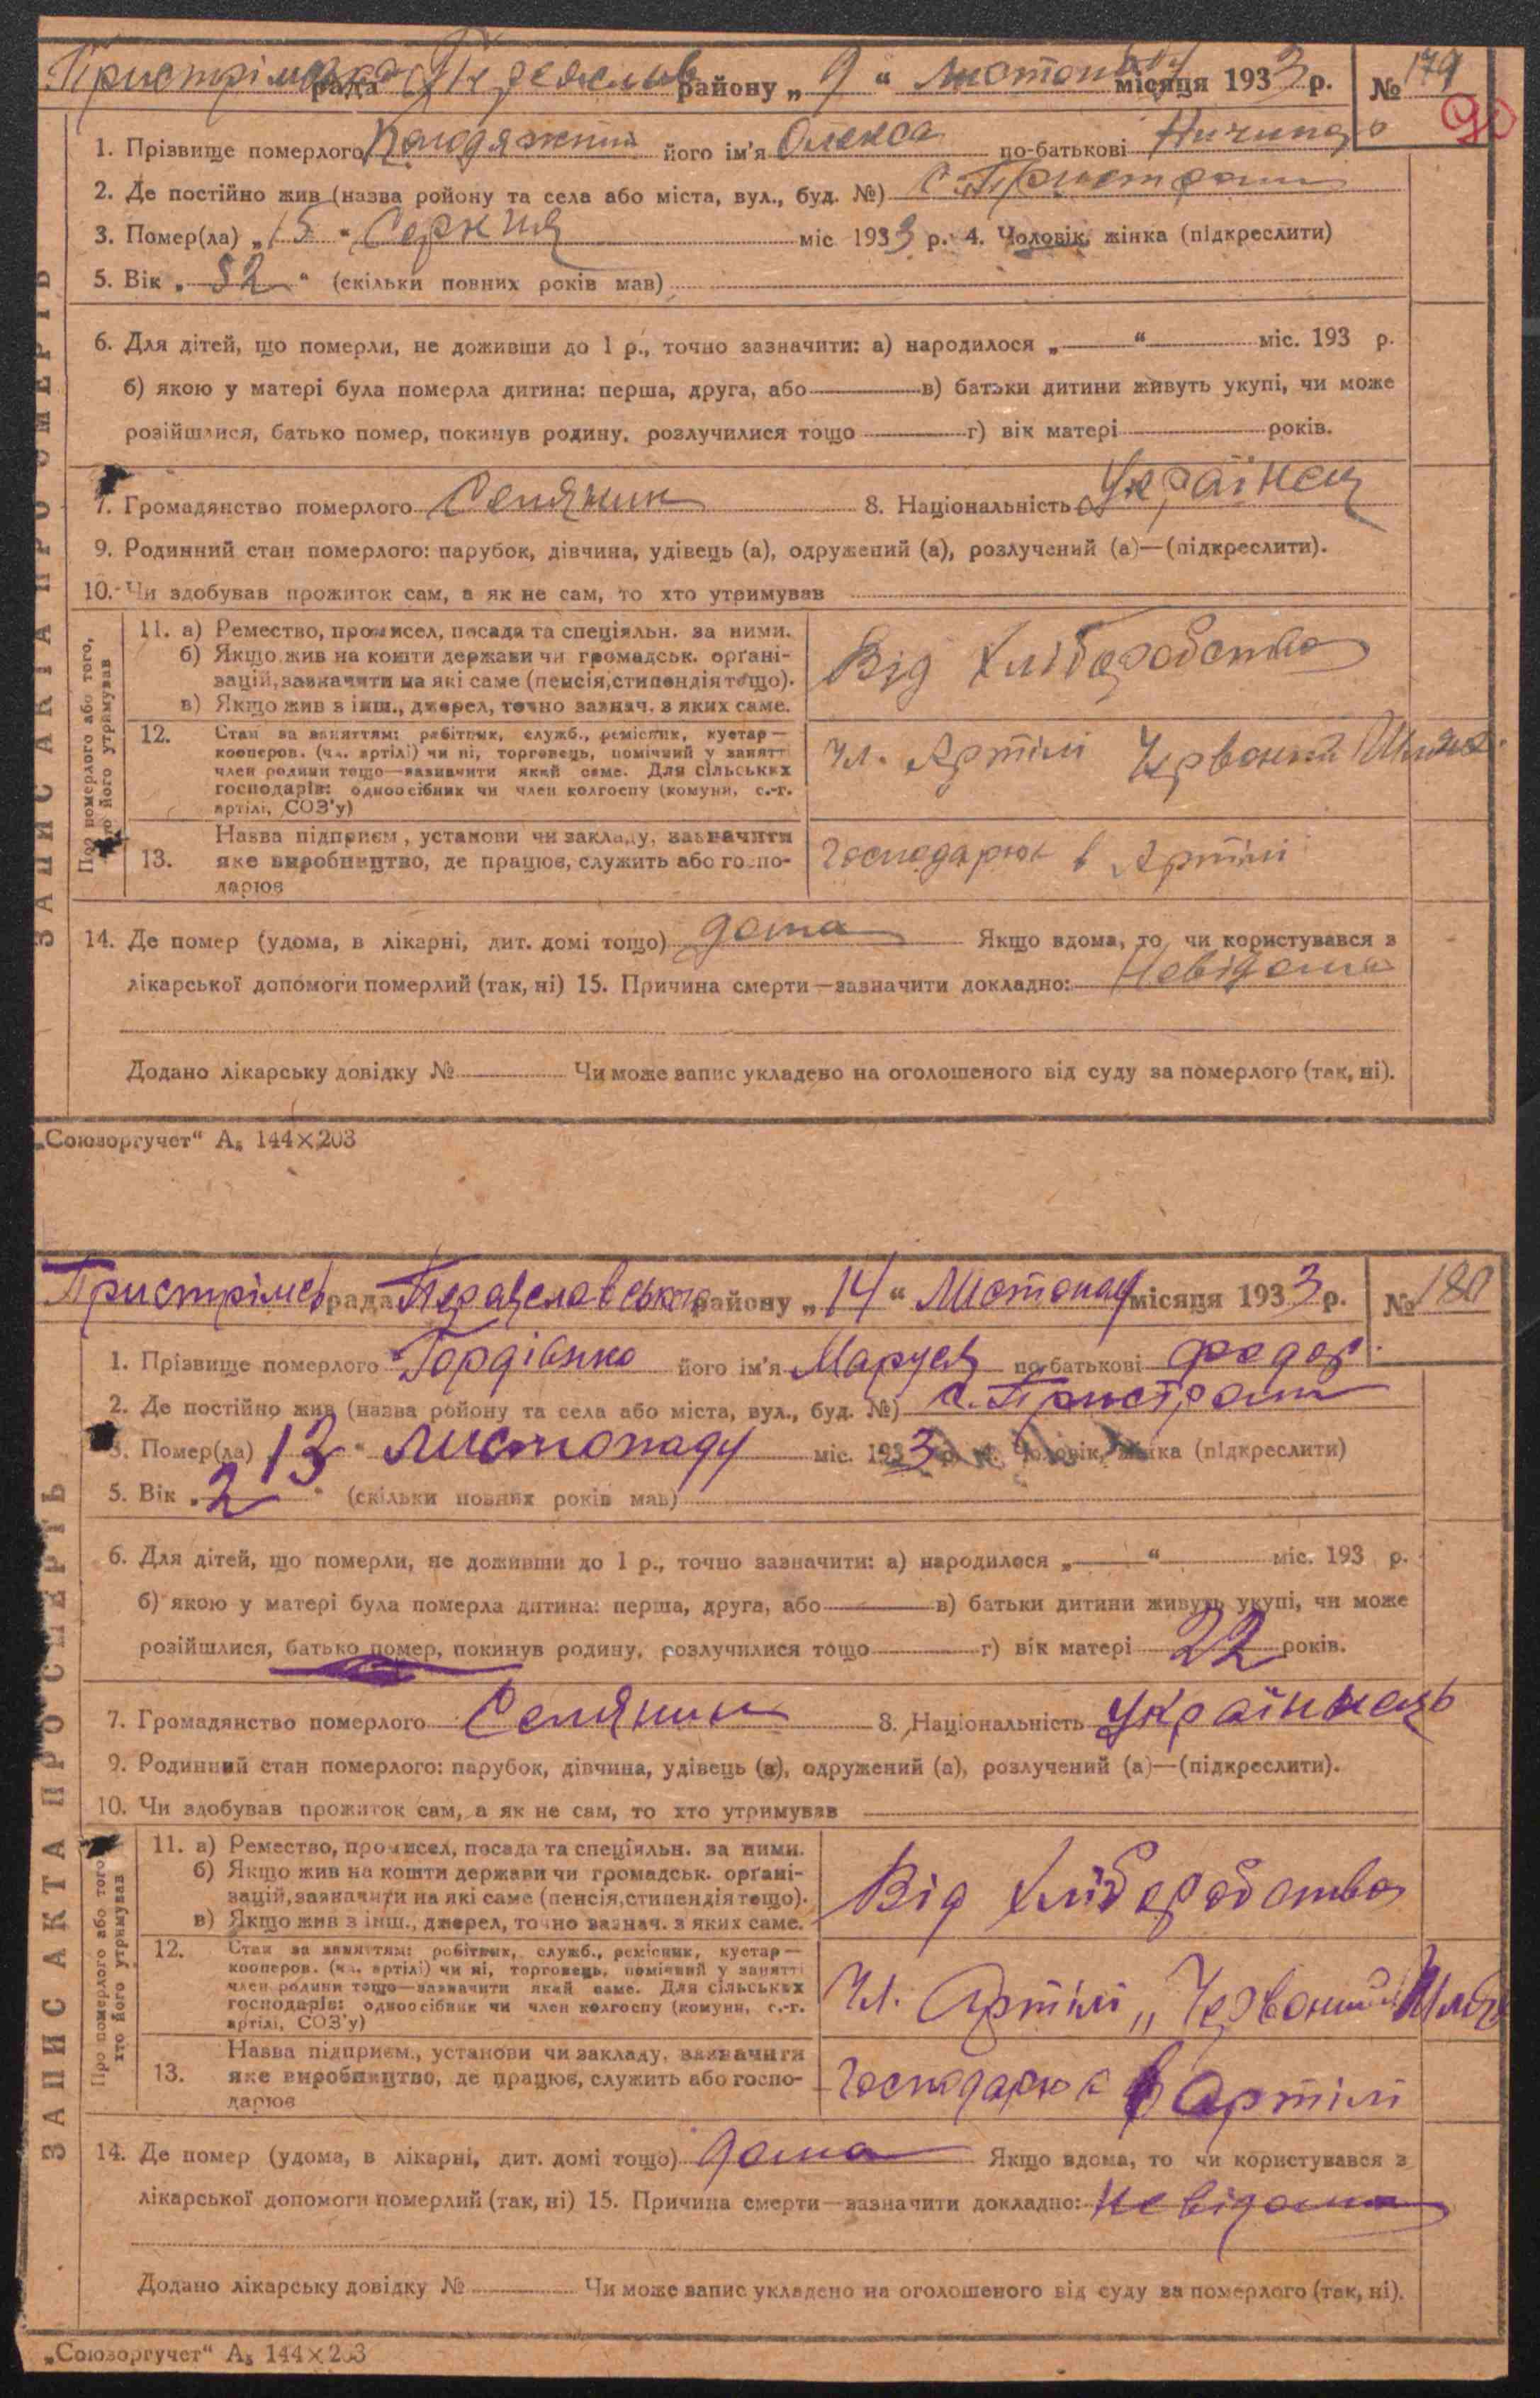 Пристрімська рада Переяслав району „ 9 “ Листопаду місяця 1933 р. № 179
90
1. Прізвище померлого його ім'я Олекса по-батькові
2. Де постійно жив (назва ройону та села або міста, вул., буд. №) с. Пристроми
3. Помер(ла) „ 15 “ Серпня міс 1933 р. 4. Чоловік, жінка (підкреслити)
5. Вік „ 52 “ (скільки повних років мав)
6. Для дітей, що померли, не доживши до 1 р., точно зазначити: а) народилося „ “ міс. 193 р.
б) якою у матері була померла дитина: перша, друга, або в) батьки дитини живуть укупі, чи може
розійшлися, батько помер, покинув родину, розлучилися тощо г) вік матері років.
7. Громадянство померлого Селянин 8. Національність Українец
9. Родинний стан померлого: парубок, дівчина, удівець (а), одружений (а), розлучений (а)—(підкреслити).
10. Чи здобував прожиток сам, а як не сам, то хто утримував
11. а) Ремество, промисел, посада та спеціяльн. за ними.
б) Якщо жив на кошти держави чи громадськ. органі-
зацій, зазначити на які саме (пенсія, стипендія тощо).
в) Якщо жив з інш., джерел, точно зазнач. з яких саме.
Від хліборобства
12. Стан за заняттям: робітник, служб., ремісник, кустар—
кооперов. (чл. артілі) чи ні, торговець, помічний у занятті
член родини тощо—зазначити який саме. Для сільських
господарів: одноосібник чи член колгоспу (комуни, с.-г.
артілі, СОЗ'у)
Чл. Артілі Червоний Шлях
13. Назва підприєм., установи чи закладу, зазначити
яке виробництво, де працює, служить або госпо-
дарює
Господарює в Артілі
14. Де помер (удома, в лікарні, дит. домі тощо) дома Якщо вдома, то чи користувався з
лікарської допомоги померлий (так, ні) 15. Причина смерти—зазначити докладно: Невідома
Додано лікарську довідку № Чи може запис укладено на оголошеного від суду за померлого (так, ні).
ЗАПИС АКТА ПРО СМЕРТЬ
Про померлого або того, хто його утримував
„Союзоргучет“ А₅ 144×203
Пристрімсь рада Переяславського району „ 14 “ Листопад місяця 1933 р. № 180
1. Прізвище померлого Гордієнко його ім'я Маруся по-батькові Федор.
2. Де постійно жив (назва ройону та села або міста, вул., буд. №) с. Пристроми
3. Помер(ла) 13 “ листопаду міс. 1933 р. 4. Чоловік, жінка (підкреслити)
5. Вік „ 2 “ (скільки повних років мав)
6. Для дітей, що померли, не доживши до 1 р., точно зазначити: а) народилося „ “ міс. 193 р.
б) якою у матері була померла дитина: перша, друга, або в) батьки дитини живуть укупі, чи може
розійшлися, батько помер, покинув родину, розлучилися тощо г) вік матері 22 років.
7. Громадянство померлого Селянин 8. Національність
9. Родинний стан померлого: парубок, дівчина, удівець (а), одружений (а), розлучений (а)—(підкреслити).
10. Чи здобував прожиток сам, а як не сам, то хто утримував
11. а) Ремество, промисел, посада та спеціяльн. за ними.
б) Якщо жив на кошти держави чи громадськ. органі-
зацій, зазначити на які саме (пенсія, стипендія тощо).
в) Якщо жив з інш., джерел, точно зазнач. з яких саме.
Від хліборобства
12. Стан за заняттям: робітник, служб., ремісник, кустар—
кооперов. (чл. артілі) чи ні, торговець, помічний у занятті
член родини тощо—зазначити який саме. Для сільських
господарів: одноосібник чи член колгоспу (комуни, с.-г.
артілі, СОЗ'у)
Чл. Артілі „Червоний Шлях
13. Назва підприєм., установи чи закладу, зазначити
яке виробництво, де працює, служить або госпо-
дарює
Господарює в Артілі
14. Де помер (удома, в лікарні, дит. домі тощо) дома Якщо вдома, то чи користувався з
лікарської допомоги померлий (так, ні) 15. Причина смерти—зазначити докладно: Невідома
Додано лікарську довідку № Чи може запис укладено на оголошеного від суду за померлого (так, ні).
ЗАПИС АКТА ПРО СМЕРТЬ
Про померлого або того, хто його утримував
„Союзоргучет“ А₅ 144×203